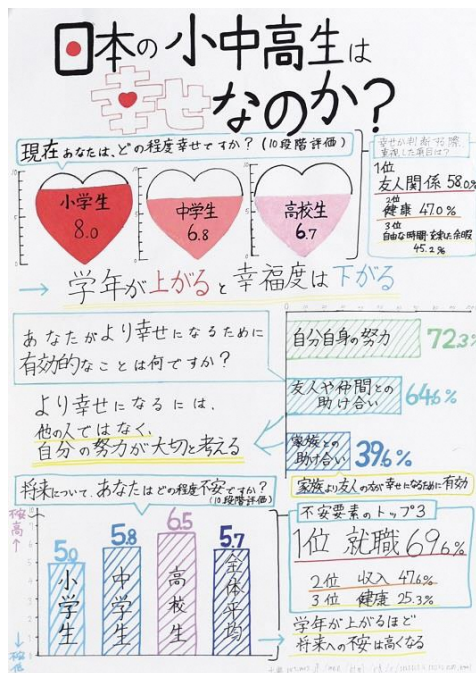 日本の小中高生は
幸せなのか?
現在あなたは、どの程度幸せですか?(10段階評価)
小学生
8.0
中学生
6.8
高校生
6.7
幸せか判断する際、
重視した項目は?
1位
友人関係 58.0%
2位
健康 47.0%
3位
自由な時間・充実した余暇
45.2%
→ 学年が上がると幸福度は下がる
あなたがより幸せになるために
有効的なことは何ですか?
自分自身の努力 72.3%
友人や仲間との
助け合い 64.6%
家族との
助け合い 39.6%
より幸せになるには、
他の人ではなく、
自分の努力が大切と考える
家族より友人の方が幸せになるために有効
将来について、あなたはどの程度不安ですか?
(10段階評価)
不安高↑
↓不安低
5.0
小学生
5.8
中学生
6.5
高校生
5.7
全体平均
不安要素のトップ3
1位 就職 69.6%
2位 収入 47.6%
3位 健康 25.3%
学年が上がるほど
将来への不安は高くなる